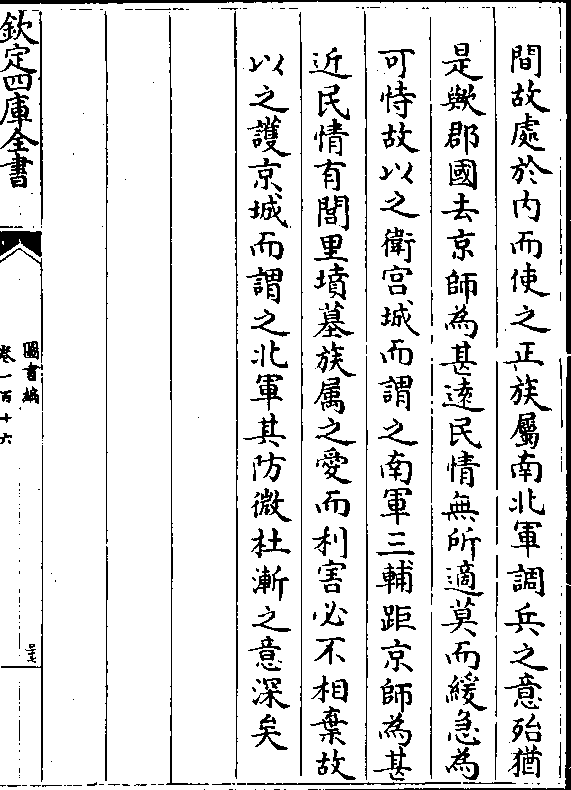 間故處於内而使之正族屬南北軍調兵之意殆猶
是歟郡國去京師為甚逺民情無所適莫而緩急為
可恃故以之衛宫城而謂之南軍三輔距京師為甚
近民情有閭里墳墓族属之愛而利害必不相棄故
以之護京城而謂之北軍其防微杜漸之意深矣
欽定四庫全書
圖書編
卷一百十六